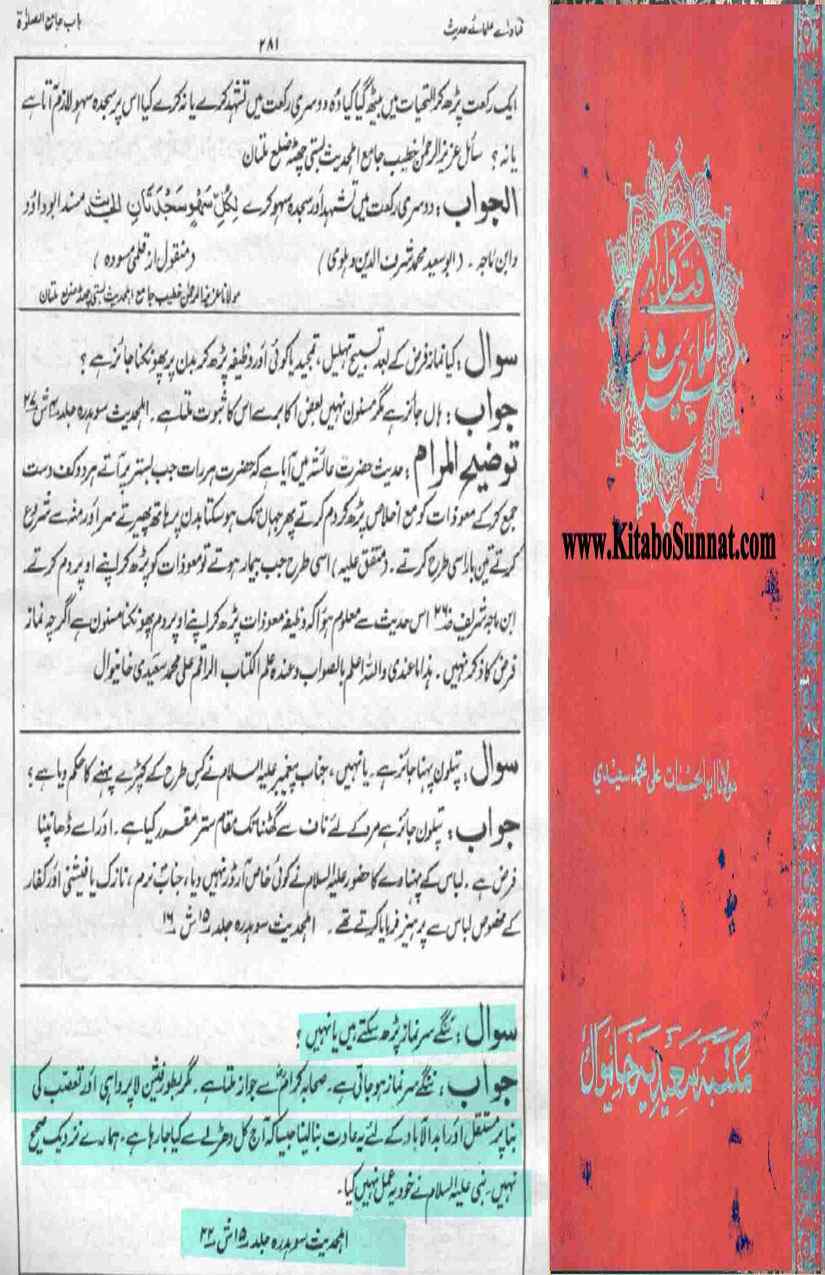 فتاوائے علمائے حدیث
۲۸۱
باب جامع الصلوٰۃ
ایک رکعت پڑھ کر التحیات میں بیٹھ گیا کیا وُہ دوسری رکعت میں تشہد کرے یا نہ کرے کیا اس پر سجدہ سہو لازم آتا ہے
یا نہ؟ سائل عزیز الرحمٰن خطیب جامع اہلحدیث بستی چھٹہ ضلع ملتان
الجواب: دوسری رکعت میں تشہد اور سجدہ سہو کرے لِکُلِّ سَھْوٍ سَجْدَتَانِ الحدیث مسند ابوداؤد
وابن ماجہ۔ (ابوسعید محمد شرف الدین دہلوی) (منقول از قلمی مسودہ)
مولانا عزیز الرحمٰن خطیب جامع اہلحدیث بستی چھٹہ ضلع ملتان
سوال: کیا نماز فرض کے بعد تسبیح تہلیل، تمجید یا کوئی اور وظیفہ پڑھ کر بدن پر پھونکنا جائز ہے؟
جواب: ہاں جائز ہے مگر مسنون نہیں بعض اکابر سے اس کا ثبوت ملتا ہے۔ اہلحدیث سوہدرہ جلد ۷ ش ۲۷
توضیح المرام: حدیث حضرت عائشہ میں آیا ہے کہ حضرت ہر رات جب بستر پر آتے ہر دو کف دست
جمع کر کے معوذات کو مع اخلاص پڑھ کر دم کرتے پھر جہاں تک ہو سکتا بدن پر ہاتھ پھیرتے سر اور منہ سے شروع
کرتے تین بار اسی طرح کرتے۔ (متفق علیہ) اسی طرح جب بیمار ہوتے تو معوذات کو پڑھ کر اپنے اوپر دم کرتے
ابن ماجہ شریف ص ۲۶ اس حدیث سے معلوم ہوا کہ وظیفہ معوذات پڑھ کر اپنے اوپر دم پھونکنا مسنون ہے اگرچہ نماز
فرض کا ذکر نہیں۔ ہذا ما عندی واللہ اعلم بالصواب وعندہ علم الکتاب الراقم علی محمد سعیدی خانیوال
سوال: پتلون پہننا جائز ہے۔ یا نہیں، جناب پیغمبر علیہ السلام نے کس طرح کے کپڑے پہننے کا حکم دیا ہے؟
جواب: پتلون جائز ہے مرد کے لئے ناف سے گھٹنا تک مقام ستر مقرر کیا ہے۔ اور اسے ڈھانپنا
فرض ہے۔ لباس کے پہناوے کا حضور علیہ السلام نے کوئی خاص آرڈر نہیں دیا، جناب نرم، نازک یا فیشنی اور کفار
کے مخصوص لباس سے پرہیز فرمایا کرتے تھے۔ اہلحدیث سوہدرہ جلد ۱۵ ش ۱۶
سوال: ننگے سر نماز پڑھ سکتے ہیں یا نہیں؟
جواب: ننگے سر نماز ہو جاتی ہے۔ صحابہ کرامؓ سے جواز ملتا ہے۔ مگر بطور فیشن لاپرواہی اور تعصب کی
بنا پر مستقل اور ابدالآباد کے لئے یہ عادت بنا لینا جیسا کہ آج کل دھڑلے سے کیا جا رہا ہے۔ ہمارے نزدیک صحیح
نہیں۔ نبی علیہ السلام نے خود یہ عمل نہیں کیا۔
اہلحدیث سوہدرہ جلد ۱۵ ش ۲۲
فتاویٰ
علمائے حدیث
www.KitaboSunnat.com
مولانا ابوالحسنات علی محمد سعیدی
مکتبہ سعیدیہ خانیوال